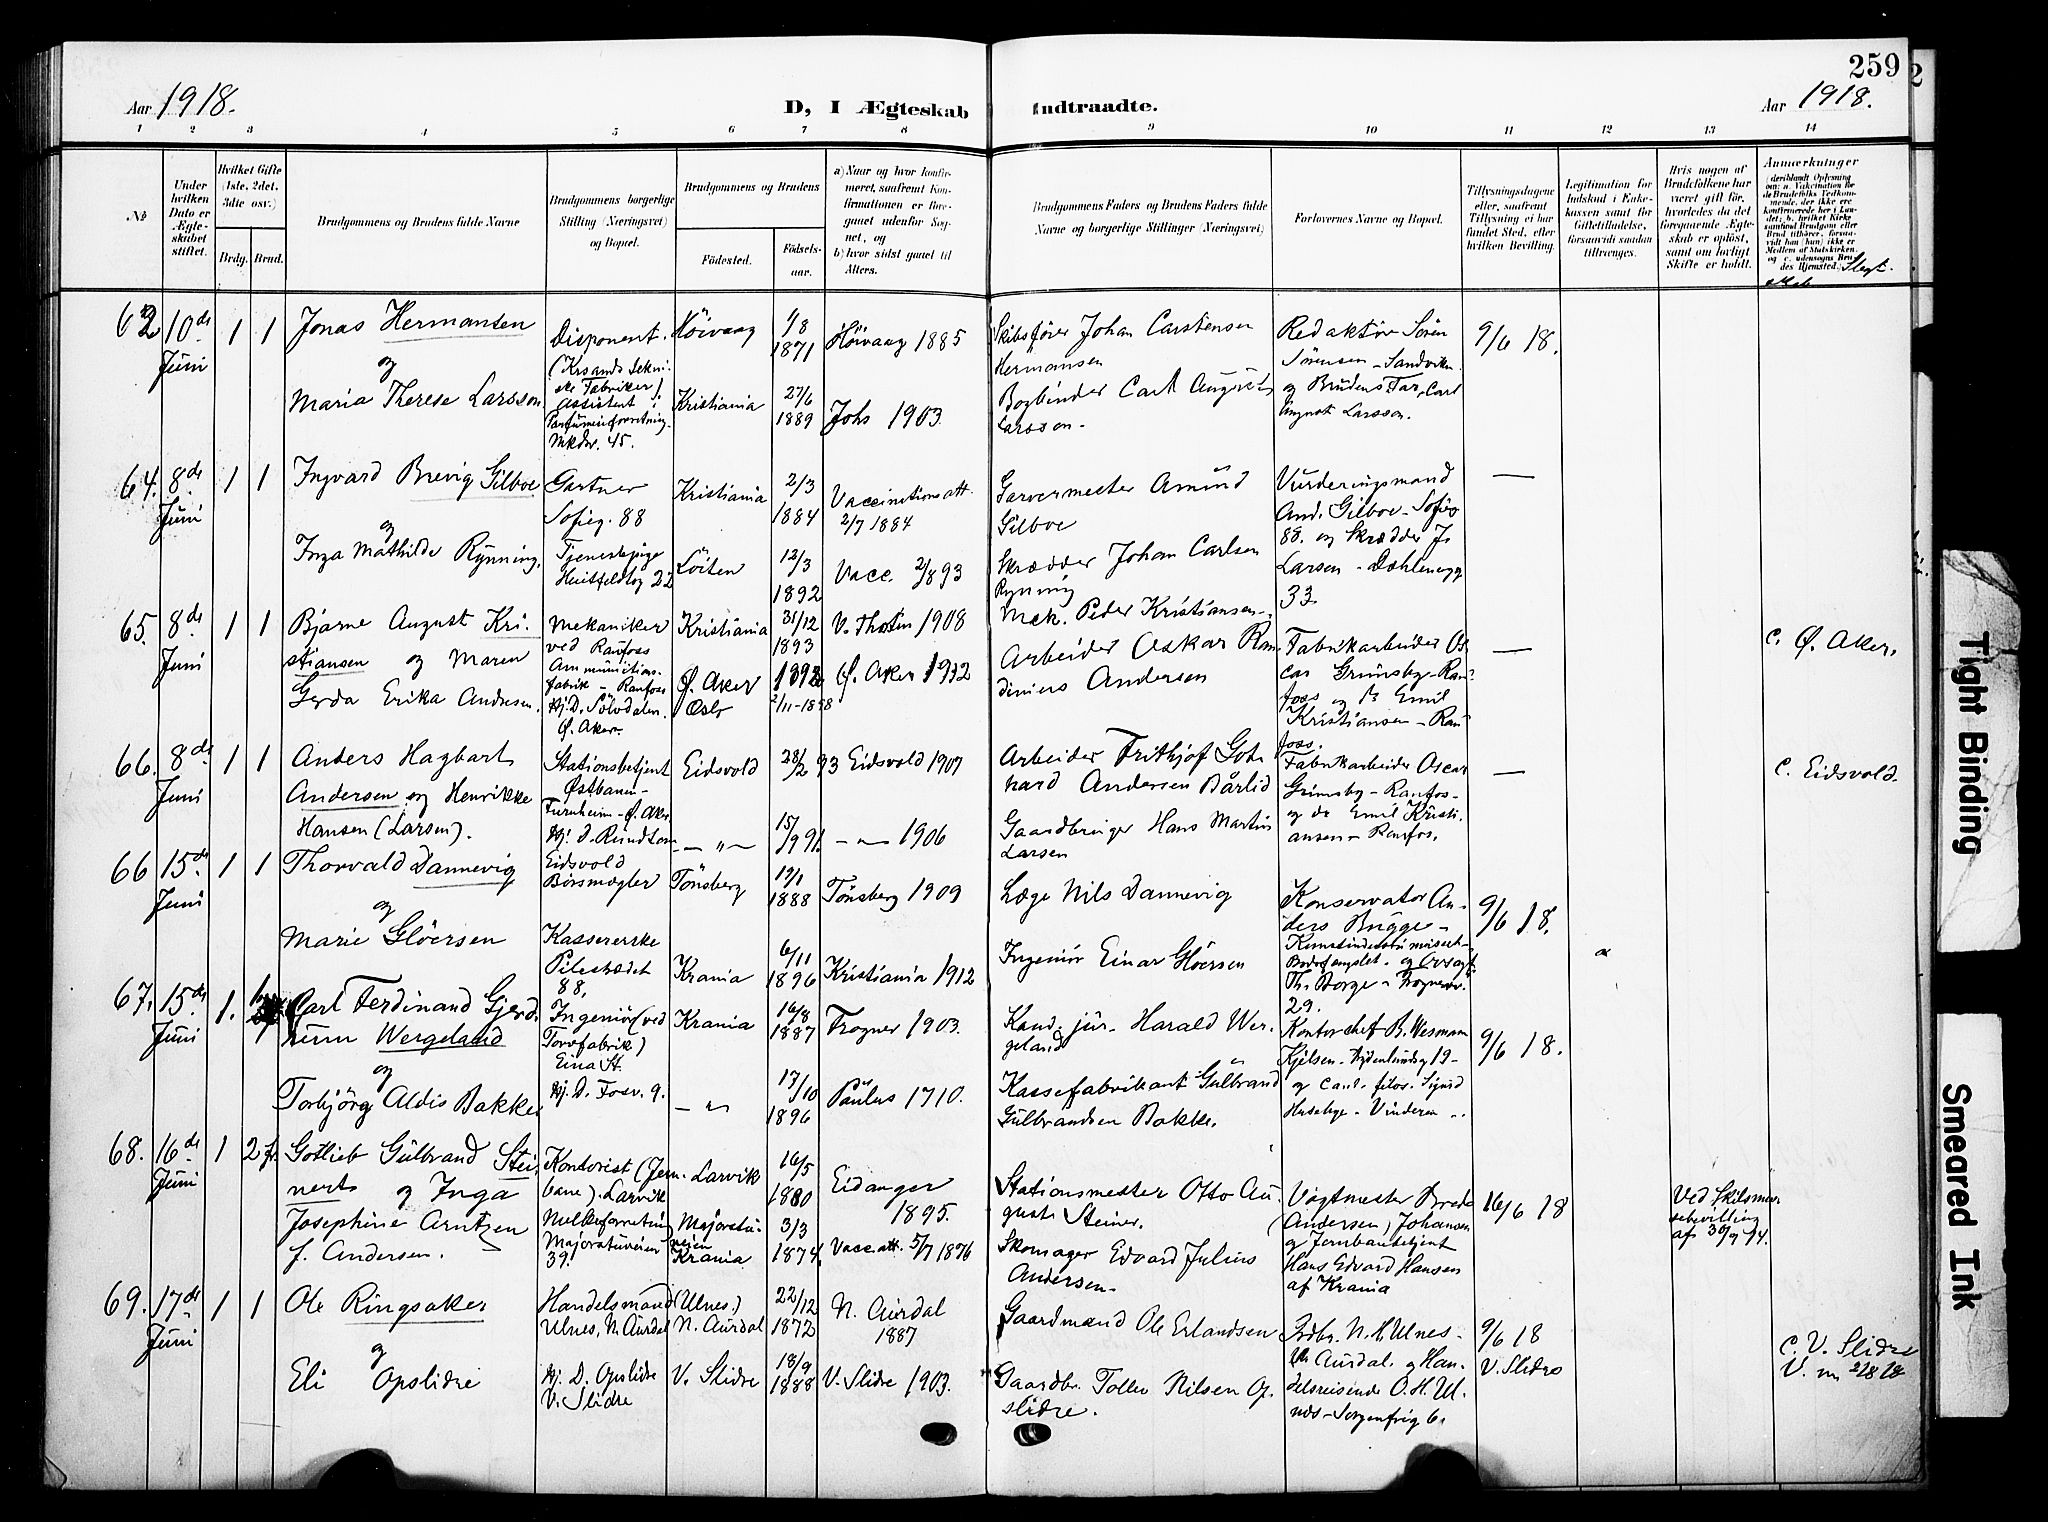 259
Aar 1918.
D, I Ægteskab indtraadte.
Aar 1918.
1 2 3 4 5 6 7 8 9 10 11 12 13 14
No
Under hvilken Dato er Ægteskabet stiftet.
Hvilket Gifte (1ste, 2det, 3die osv.)
Brdg. Brud.
Brudgommens og Brudens fulde Navne
Brudgommens borgerlige Stilling (Næringsvei) og Bopæl.
Brudgommens og Brudens
Fødested.
Fødsels-aar.
a) Naar og hvor konfirmeret, saafremt Konfirmationen er foregaaet udenfor Sognet, og
b) hvor sidst gaaet til Alters.
Brudgommens Faders og Brudens Faders fulde Navne og borgerlige Stillinger (Næringsvei)
Forlovernes Navne og Bopæl.
Tillysningsdagene eller, saafremt Tillysning ei har fundet Sted, efter hvilken Bevilling.
Legitimation for Indskud i Enkekassen samt for Giftetilladelse, forsaavidt saadan tiltrænges.
Hvis nogen af Brudefolkene har været gift før, hvorledes da det foregaaende Ægteskab er opløst, samt om lovligt Skifte er holdt.
Anmærkninger
62 10de Juni 1 1
Jonas Hermansen
og
Maria Therese Larsson
Disponent.
Assistent i
Parfümeriforretning
Mkdv. 45.
Høivaag 1/8 1871 Høivaag 1885
Kristiania 27/6 1889 Johs 1903.
Skibsfører Johan Carstensen
Hermansen
Bogbinder Carl August
Larsson
Redaktør Søren
Sørensen - Sandviken
og Brudens Far, Carl
August Larsson.
9/6 18.
64. 8de Juni 1 1
Ingvard Brevig Gilboe
og
Inga Mathilde Rynning.
Gartner
Sofieg. 88
Tjenestepige
Huitfeldtsg 22
Kristiania 2/3 1884 Vaccinations att. 2/7 1884
Löiten 12/3 1892 Vacc. 2/8 93
Garvermester Amund
Gilboe
Skrædder Johan Carlsen
Rynning
Vurderingsmand
And. Gilboe - Sofieg
88. og Skrædder J.
Larsen - Dahlenegg
33.
—
65. 8de Juni 1 1
Bjarne August Kri-
stiansen og Maren
Gerda Erika Andresen.
Mekaniker
ved Raufoss
Ammunitions-
fabrik - Raufoss
Hj. D. Sölvdalen.
Ø. Aker.
Kristiania 31/12 1893 V. Thotin 1908
Ø. Aker
Oslo
2/11-1898 Ø. Aker 1912
Mek. Peder Kristiansen.
Arbeider Oskar Ran-
dinius Andersen
Fabrikarbeider Os-
car Grimsby - Rau-
foss og Do Emil
Kristiansen - Rau-
foss.
—
c. Ø. Aker.
66. 8de Juni 1 1
Anders Hagbart
Andersen og Henrikke
Hansen (Larsen).
Stationsbetjent
Østbanen -
Furuheim - Ø. Aker
Hj. D. Rundtom
Eidsvold
Eidsvold 28/2 93 Eidsvold 1907
— " — 15/9 91. — " — 1906
Arbeider Frithjof Got-
hard Andersen Bårlid
Gaardbruger Hans Martin
Larsen
Fabrikarbeider Oscar
Grimsby - Raufos -
og do Emil Kristi-
ansen - Raufos.
—
c. Eidsvold.
66 15de Juni 1 1
Thorvald Dannevig
og
Marie Glöersen
Börsmægler
Kassererske
Pilestrædet
88,
Tönsberg 19/1 1888 Tönsberg 1909
Krania 6/11 1896 Kristiania 1912
Læge Nils Dannevig
Ingeniör Einar Glöersen
Konservator An-
ders Bugge -
Th. Borge - Frognerv.
29.
9/6 18.
67. 15de Juni 1.
Carl Ferdinand Gjerd-
rum Wergeland
og
Torbjörg Aldis Bakke
Ingeniör (ved
Torvfabrik)
Eina St.
Hj. D. Fosv. 9.
Krania 16/8 1887 Frogner 1903.
— " — 17/10 1896 Paulus 1910.
Kand. jur. Harald Wer-
geland
Kassefabrikant Gulbrand
Gulbrandsen Bakke.
Kontorchef B. Wesmann
Kjelsen - Lydenlundsg 19 -
og cand. filos. Sigurd
Huseby - Vinderen
9/6 18.
68. 16de Juni 1 2 fr.
Gotlieb Gulbrand Stei-
nert og Inga
Josephine Arntzen
f. Andersen.
Kontorist (Jern-
bane). Larvik
Melkeforretning
Majorstuveien
39!
Larvik 16/5 1880 Eidanger 1895.
Majorstu-
veien
Krania 3/3 1874. Vacc. att. 5/7 1876
Stationsmester Otto Au-
gust Steiner.
Skomager Edvard Julius
Andersen.
Vogtmester Brede
(Andersen) Johansen
og Jernbanebetjent
Hans Edvard Hansen
af Krania
16/6 18
Ved Skilsmis-
sebevilling
af 30/9 14.
69. 17de Juni 1 1
Ole Ringsaker
og
Eli Opslidre
Handelsmand
Ulnes, N. Aurdal
Hj. D. Opslidre
V. Slidre
(Ulnes.)
N. Aurdal 22/12 1872 N. Aurdal 1887
V. Slidre 18/9 1888 V. Slidre 1903.
Gaardmand Ole Erlandsen
Gaardbr. Tollev Nilsen Op-
slidre.
Grdbr. N. H. Ulnes -
N. Aurdal. og Han-
delsreisende O. H. Ul-
nes - Sorgenfrig 6.
9/6 18
V. Slidre
c. V. Slidre
Tight Binding
Smeared Ink